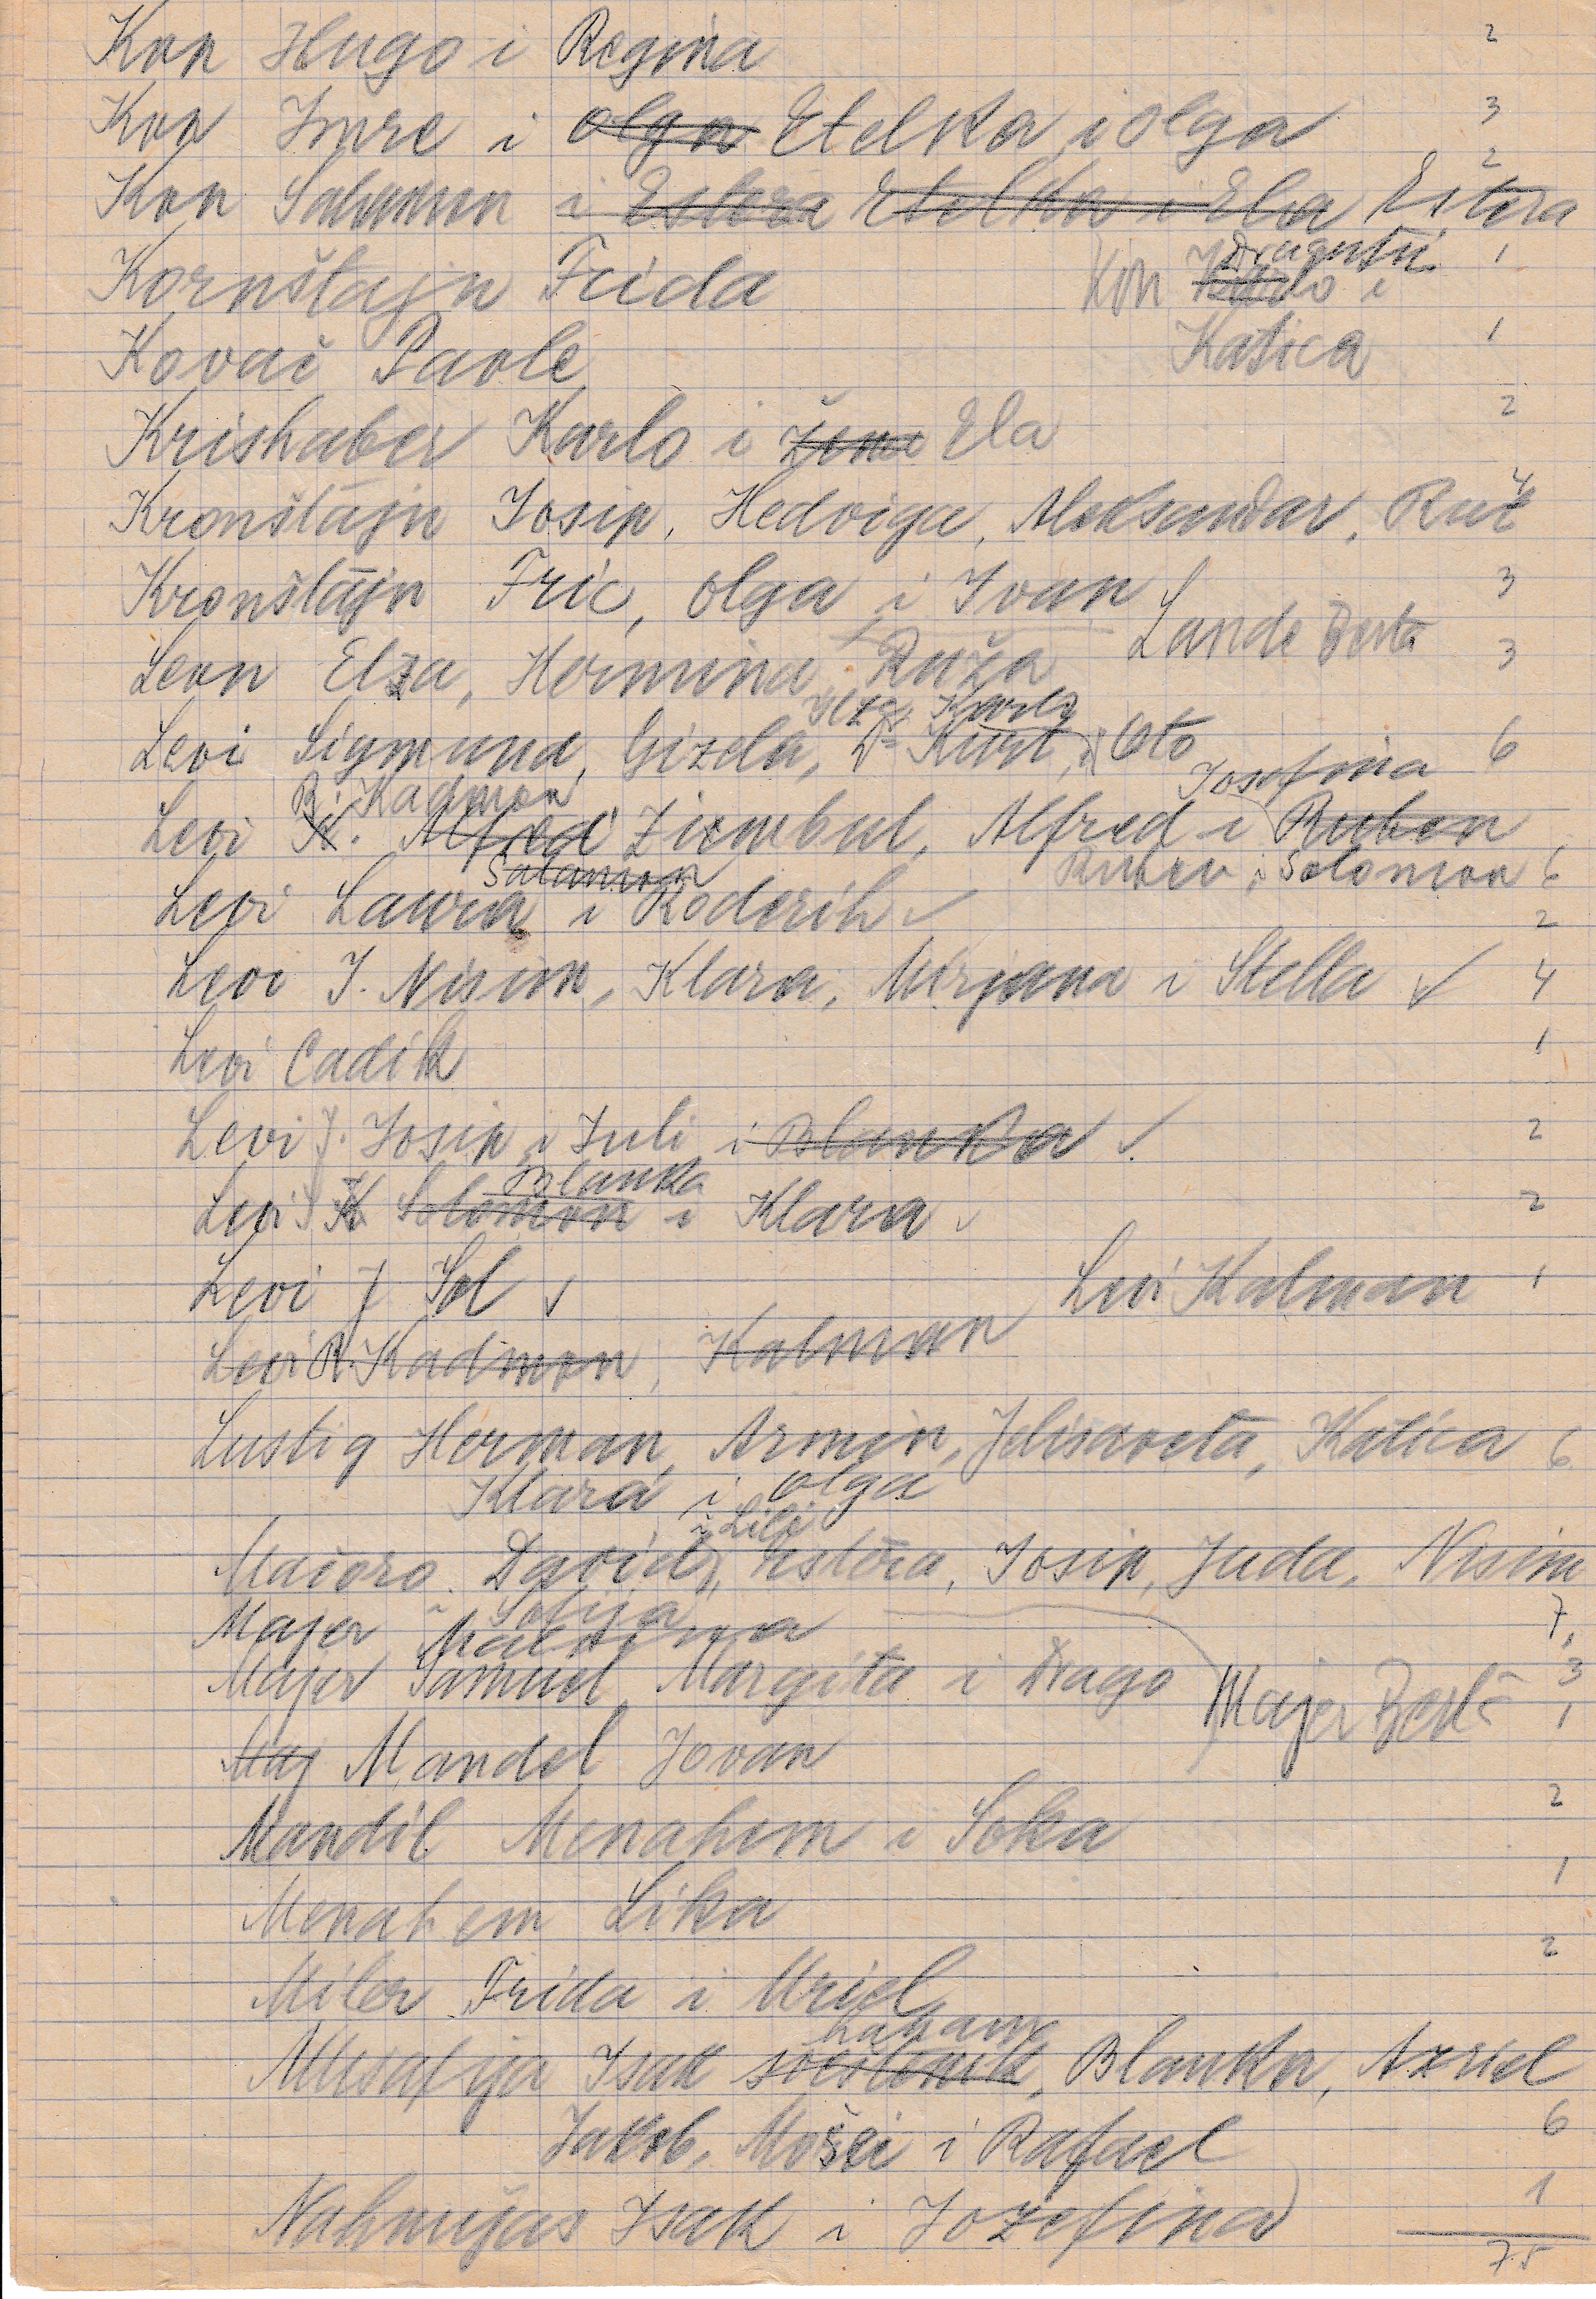 Kon Hugo i Regina 2
Kon Imre i Olga Etelka i Olga 3
Kon Salamon i Estera Etelka i Ela Estera 2
Dragutin
Kornštajn Frida Kon Karlo i 1
Kovač Pavle Katica 1
Krishaber Karlo i žena Ela 2
Kronštajn Josip, Hedviga, Aleksandar, Ruž 4
Kronštajn Fric, Olga i Ivan 3
Lande Berta
Leon Elza, Hermina, Ruža 3
Ilza, Karlo
Levi Sigmund, Gizela, Dr Kurt, i Oto 6
B. Kadmon Josefina
Levi K. Alfred Zimbul, Alfred i Ruben
Salamon Ruben i Solomon 6
Levi Laura i Roderih 2
Levi J. Nisim, Klara, Mirjana i Stella 4
Levi Cadik 1
Levi J. Josip i Juli i Blanka 2
Blanka
Levi J K Solomon i Klara 2
Levi J Sol Levi Kalman 1
Levi R. Kadmon, Kalman
Lustig Herman, Armin, Jelisaveta, Katica 6
Klara i Olga
i Lili
Maioro David, Estera, Josip, Juda, Nisim
Sofija 7
Majer Malvina
Majer Samuel, Margita i Drago 3
Majer Berta 1
Maj Mandel Jovan
Mandil Menahem i Soka 2
Menahem Lika 1
Miler Frida i Mriel 2
Musafija Isak Blanka, Azriel
Jakob, Mošei i Rafael 6
Nahmijas Isak i Jozefina 1
75